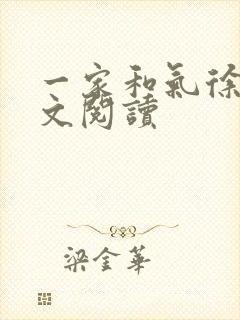 一家和氣徐
文閱讀
梁金華